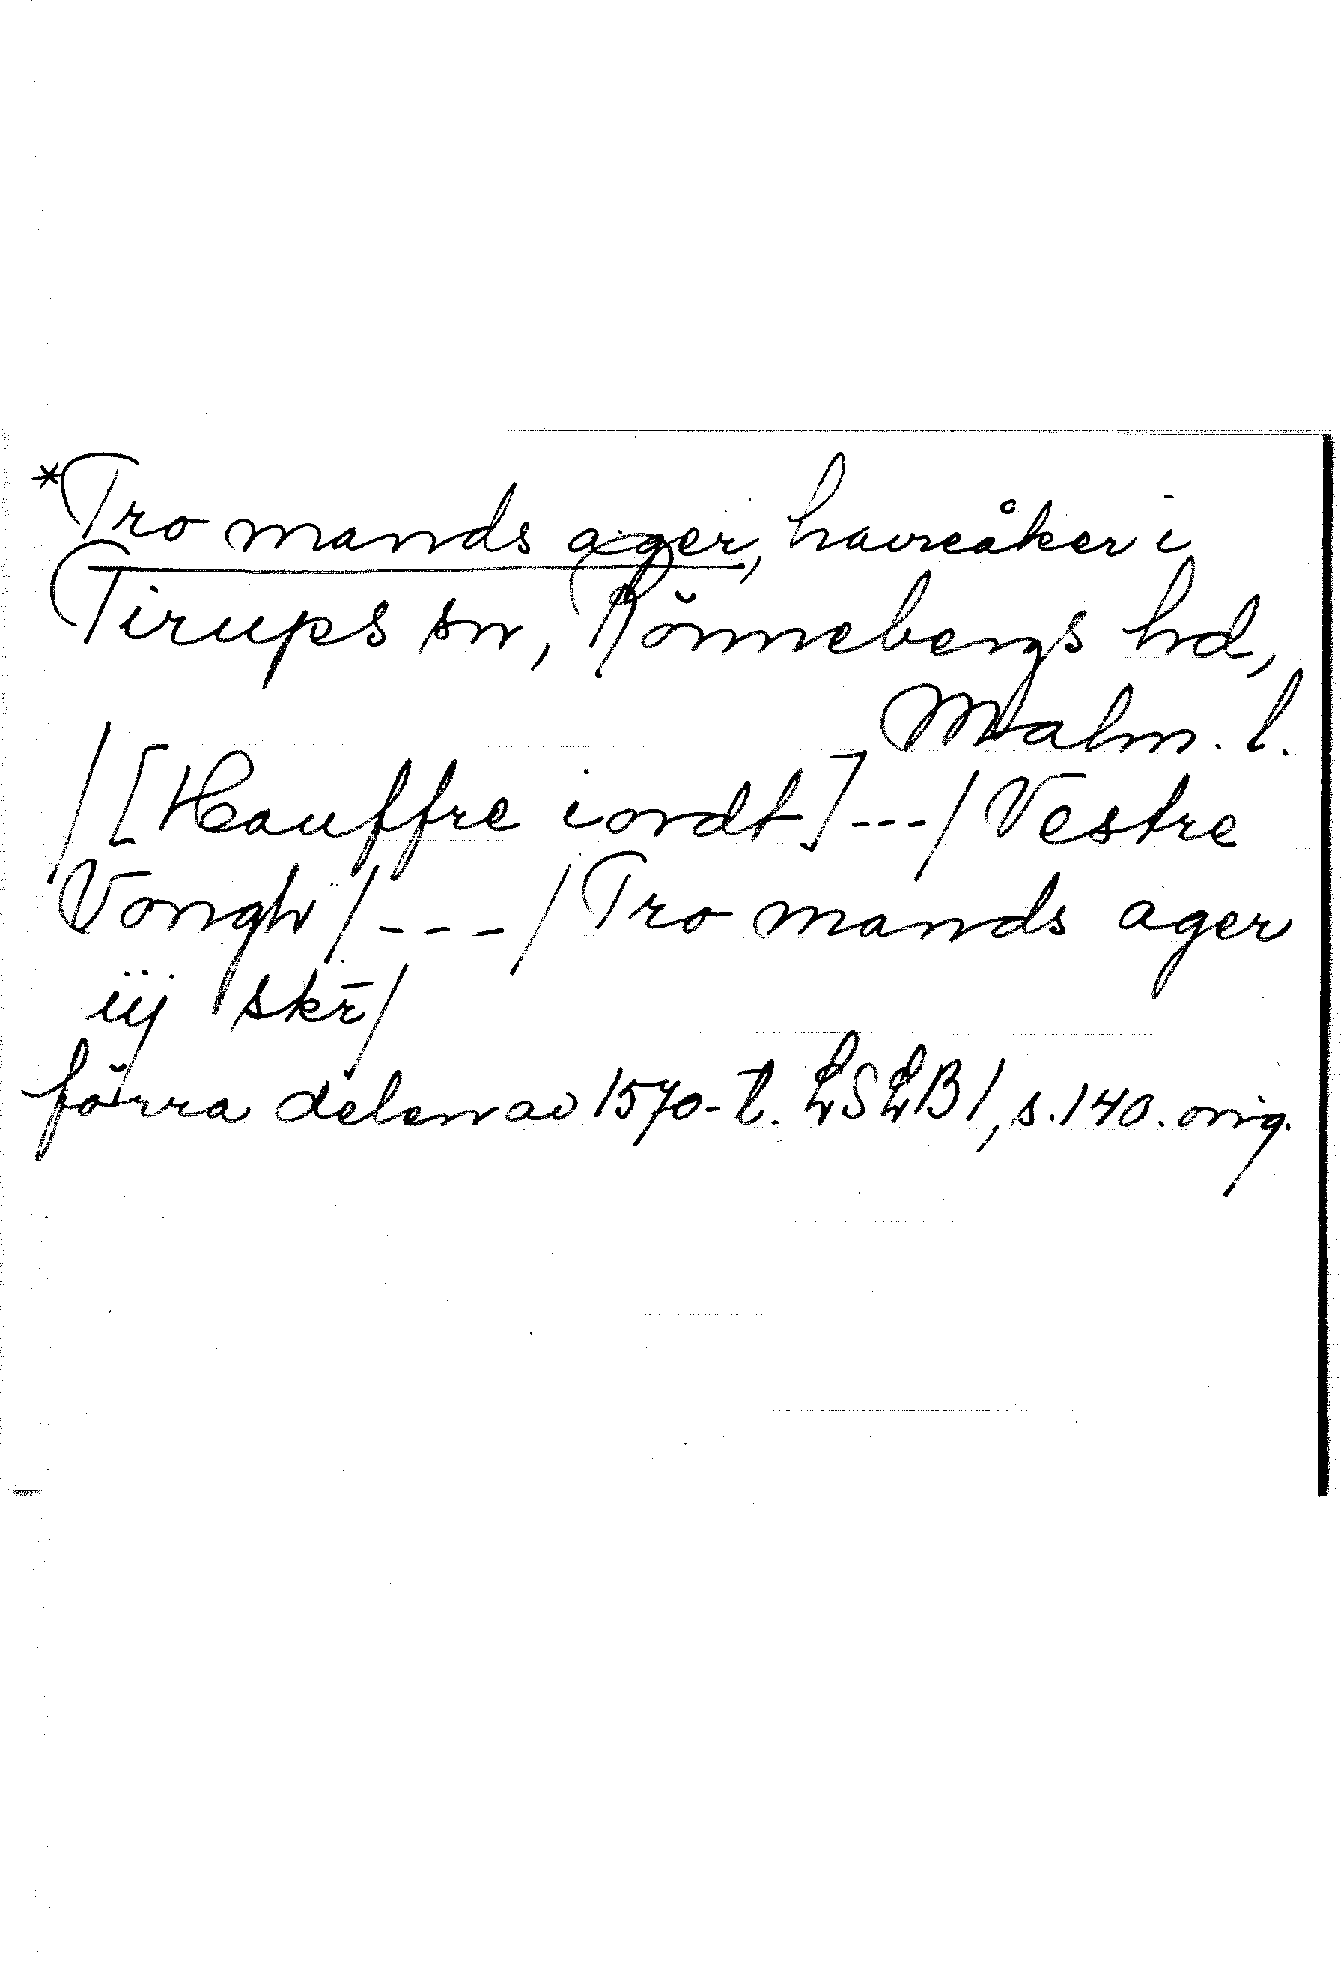 *Tro mands ager, havreåker i
Tirups sn, Rönnebergs hd,
Malm. l.
/[Hauffre iordt]---/Vestre
Vongh/---/Tro mands ager
iij skr̄/
förra delen av 1570-t. LSLB1, s.140. orig.